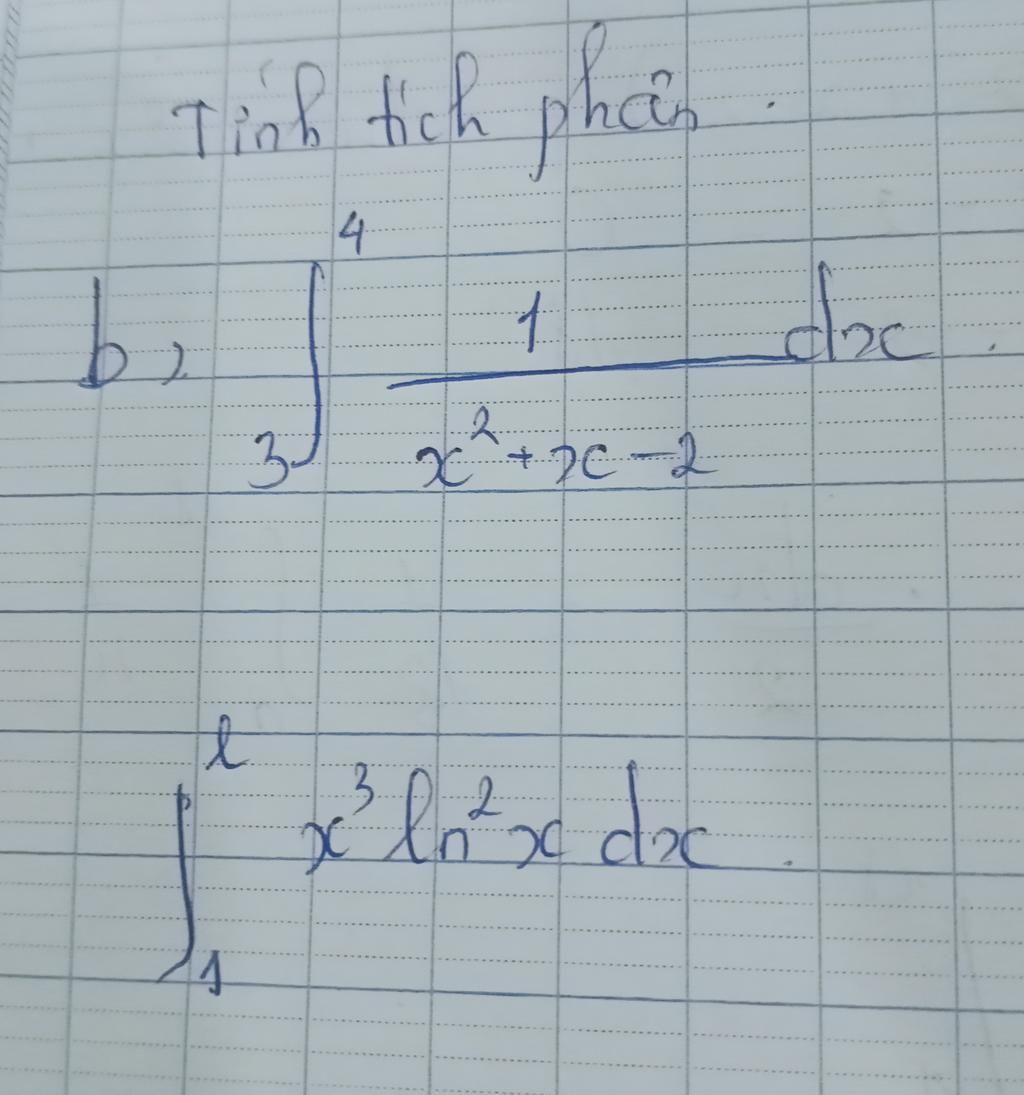 Tính tích phân.
b, ∫₃⁴ 1/(x² + x - 2) dx.
∫₁ᵉ x³ ln² x dx.